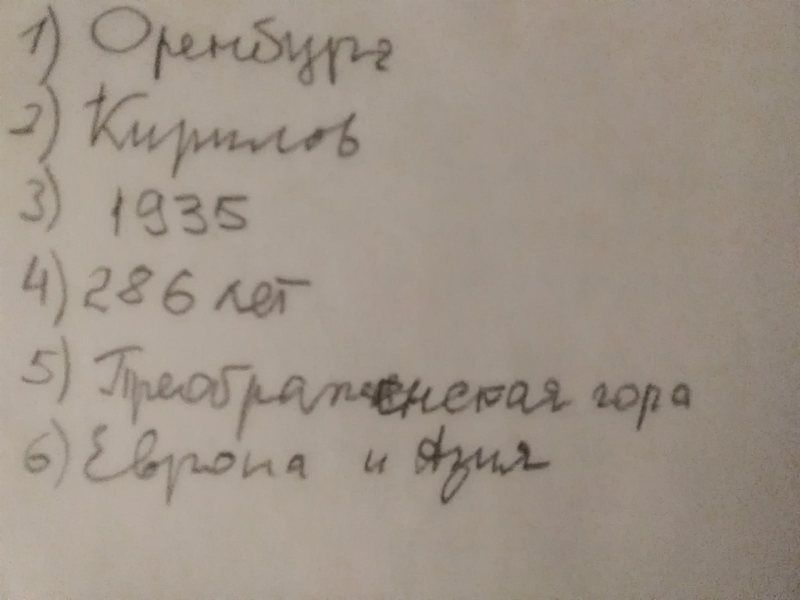 1) Оренбург
2) Кирилов
3) 1935
4) 286 лет
5) Преображенская гора
6) Европа и Азия